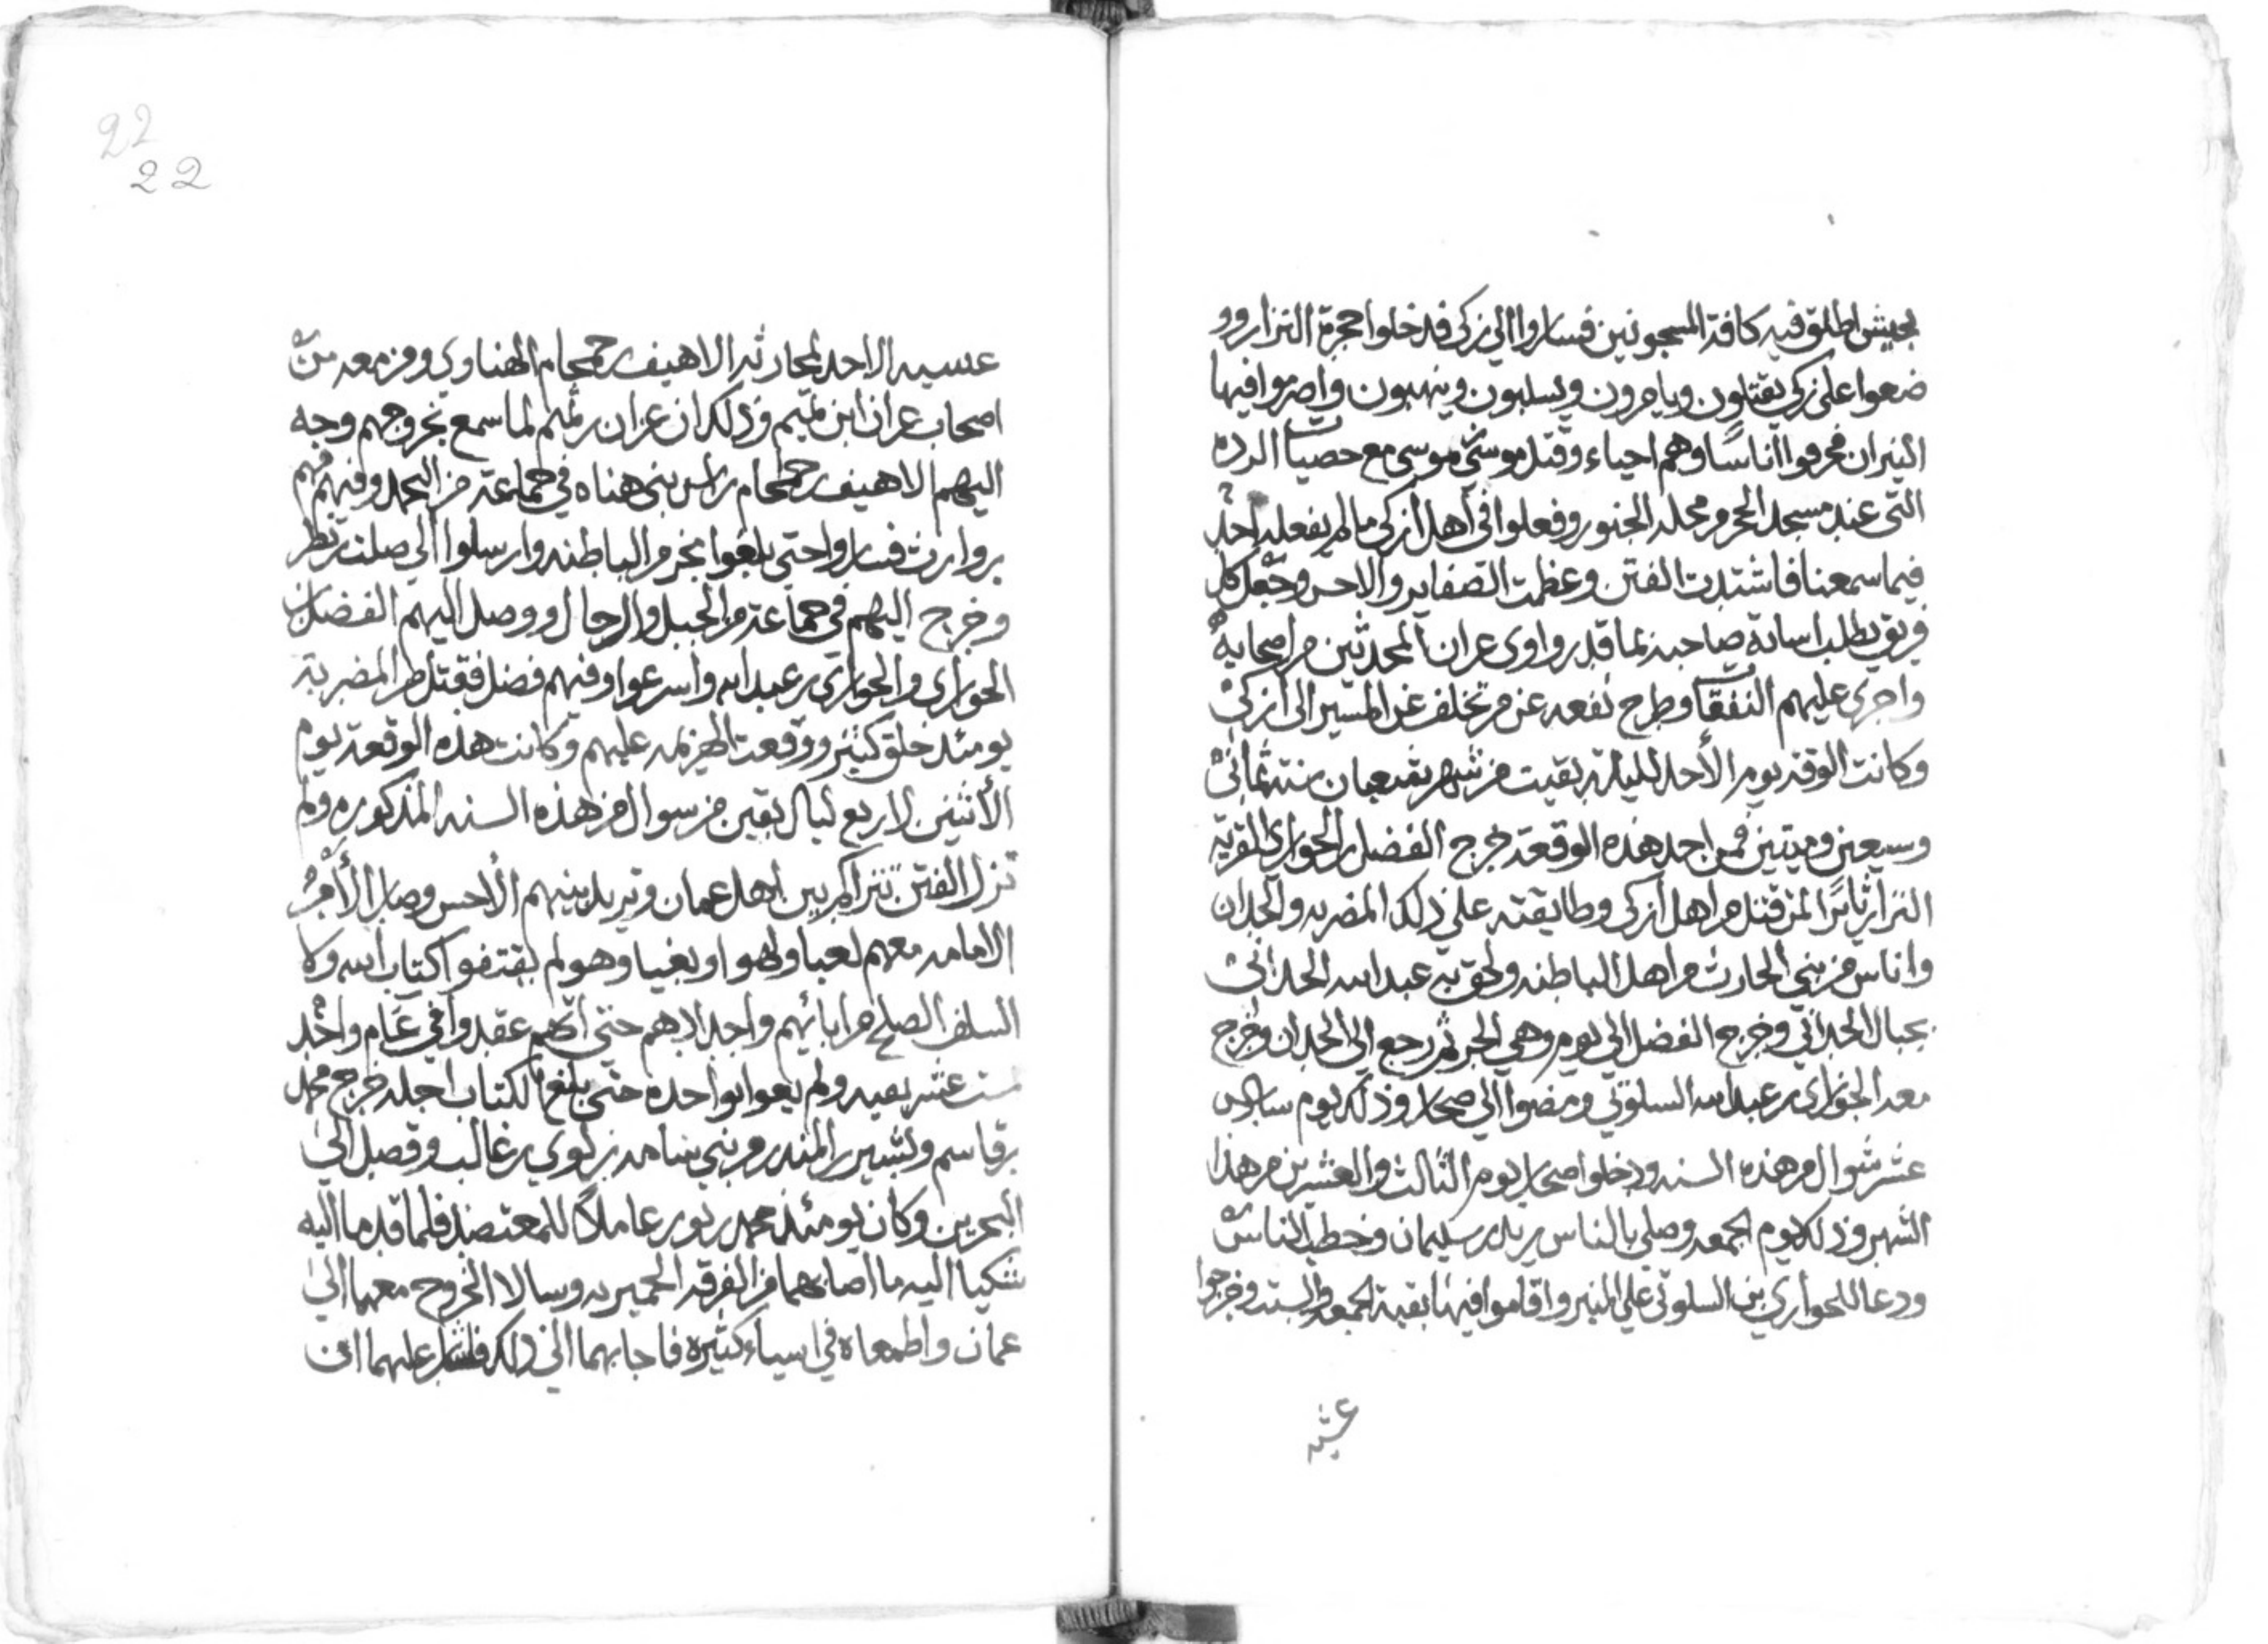 بجيش اطلق فيه كافة المسجونين فساروا الى زكى فدخلوا حجرة النزار وو
ضعوا على زكي يقتلون ويامرون ويسلبون وينهبون واصرموا فيها
النيران فحرقوا اناسًا وهم احياء وقتل موسى بن موسى مع حصيات الرده
التي عند مسجد الحجر من محلة الجنور وفعلوا في اهل ازكى ما لم يفعله احد
فيما سمعنا فاشتدت الفتن وعظمت الضغاين والاحن وجعل كل
فريق يطلب اساءة صاحبه بما قدر واوى عزان المحدثين من اصحابه
واجرى عليهم النفقا وطرح نفعه عن من تخلف عن المسير الى ازكى
وكانت الوقعه يوم الأحد لليلة بقيت من شهر شعبان سنة ثماني
وسبعين وميتين فمن اجل هذه الوقعة خرج الفضل بن الحواري القرية
النزار ثايرًا لمن قتل من اهل ازكى وطابقته على ذلك المضريه والحدان
واناس من بني الحارث من اهل الباطنه ولحق به عبد الله الحداني
بجبال الحداني وخرج الفضل الى يوم وهي الجر ثم رجع الى الحدان وخرج
معه الحواري بن عبد الله السلوتي ومضوا الى صحار وذلك يوم سادس
عشر شوال من هذه السنه ودخلوا صحار يوم الثالث والعشرين من هذا
الشهر وذلك يوم الجمعه وصلى بالناس زياد بن سليمان وخطب الناس
ودعا للحواري بن السلوتي على المنبر واقاموا فيها بقية الجمعه والسبت وخرجوا
عشيه
22
22
عسيه الاحد لمحاربة الاهيف بن حمحام الهناوي ومن معه من
اصحاب عزان ابن تميم وذلك ان عزان بن تميم لما سمع بخروجهم وجه
اليهم الاهيف بن حمحام راس بني هناه في جماعة من اليحمد وفيهم فهم
بن وارث فساروا حتى بلغوا مجز من الباطنه وارسلوا الى صلت بن نظر
وخرج اليهم في جماعة من الخيل والرجال ووصل اليهم الفضل بن
الحواري والحواري بن عبد الله واسرعوا وفيهم فضل فقتل من المضرية
يومئذ خلق كثير ووقعت الهزيمه عليهم وكانت هذه الوقعة يوم
الأثنين لاربع ليال بقين من سوال من هذه السنه المذكوره ولم
تزل الفتن تتراكم بين اهل عمان وتزيد بينهم الأحن وصار الأمر
الامامه معهم لعبا ولهوا وبغيا وهو لم يقتفوا كتاب الله ولا
السلف الصلح من ابائهم واجدادهم حتى انهم عقدوا في عام واحد
ست عشر بعيه ولم يفوا بواحده حتى بلغ الكتاب اجله خرج محمد
بن قاسم وبشير بن المنذر من بني سامه بن لوي بن غالب وقصد الى
البحرين وكان يومئذ محمد بن بور عاملاً للمعتضد فلما قدما اليه
شكيا اليه ما اصابهما من الفرقه الحميريه وسالا الخروج معهما الى
عمان واطمعاه في اسياء كثيره فاجابهما الى ذلك فاشار عليهما ان